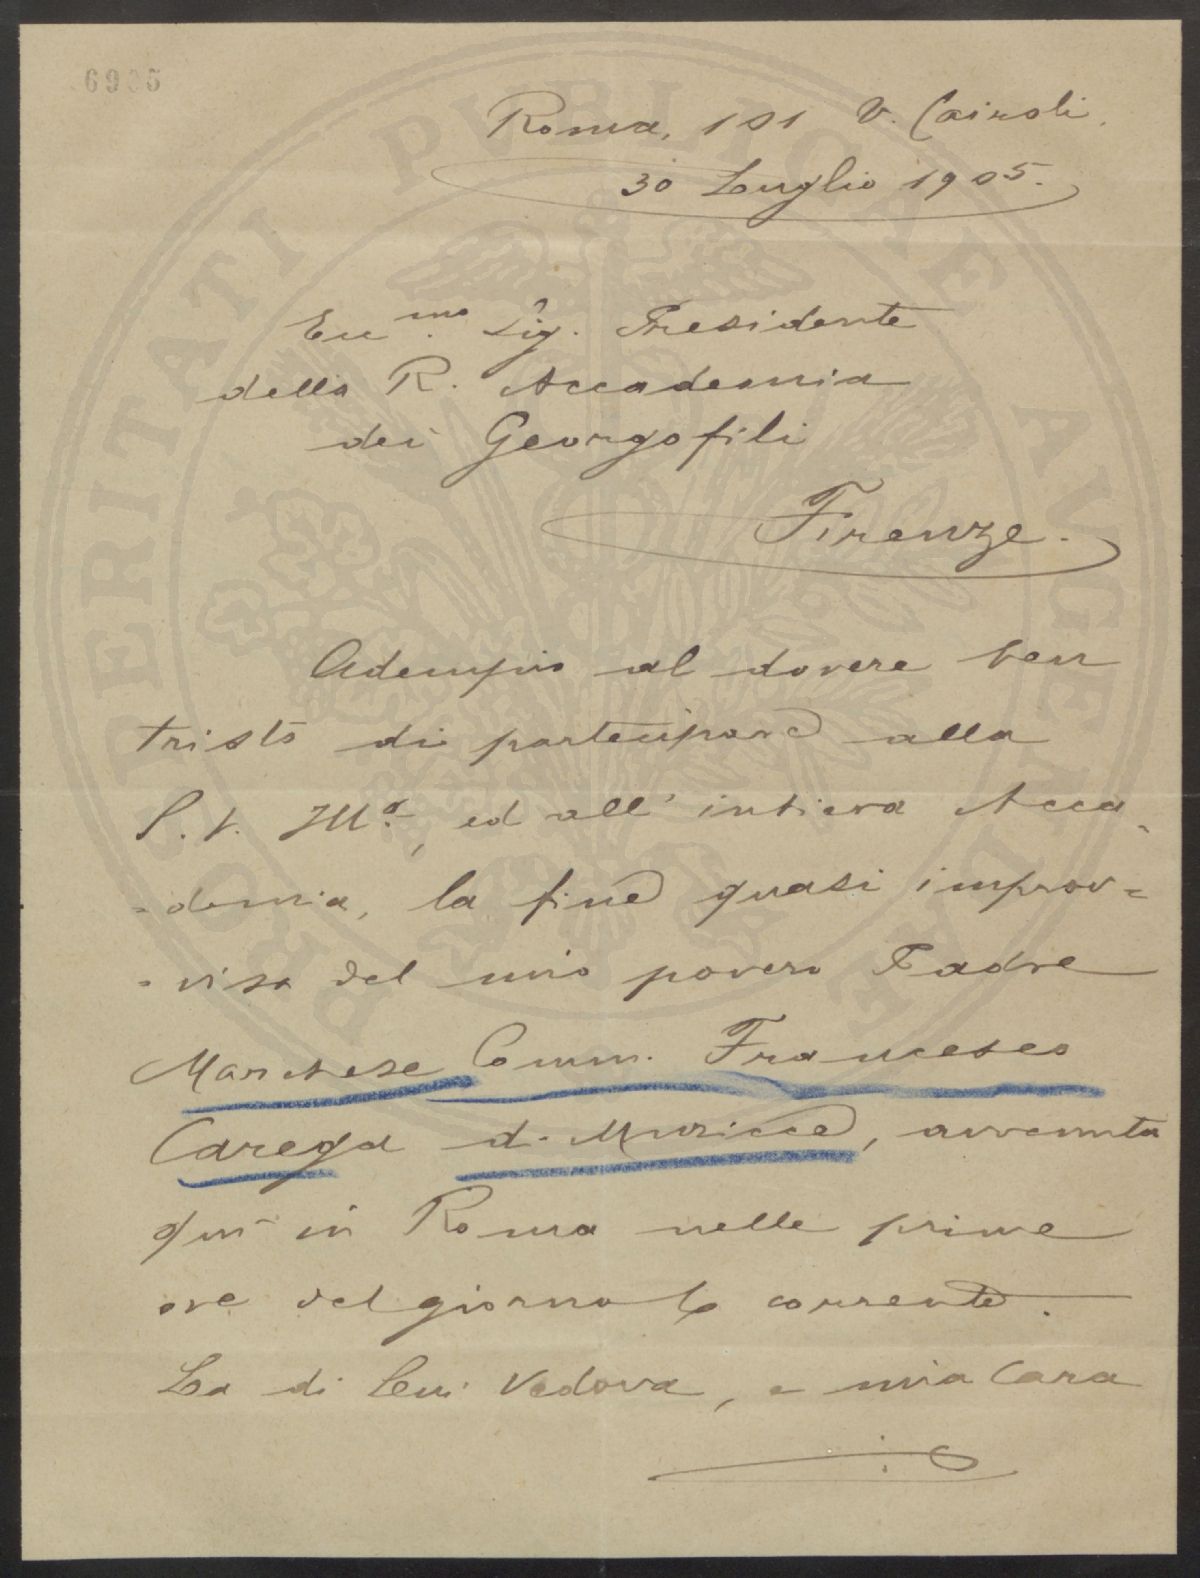 6905
Roma, 101 V. Cairoli.
30 Luglio 1905.
Ecc.mo Sig. Presidente
della R. Accademia
dei Georgofili
Firenze.
Adempio al dovere ben
triste di partecipare alla
S. V. Ill.a, ed all'intiera Acca-
-demia, la fine quasi improv=
-visa del mio povero Padre
Marchese Comm. Francesco
Carega di Muricce, avvenuta
qui in Roma nelle prime
ore del giorno corrente.
La di Lui Vedova, e mia Cara
PROSPERITATI PVBLICAE AVGENDAE